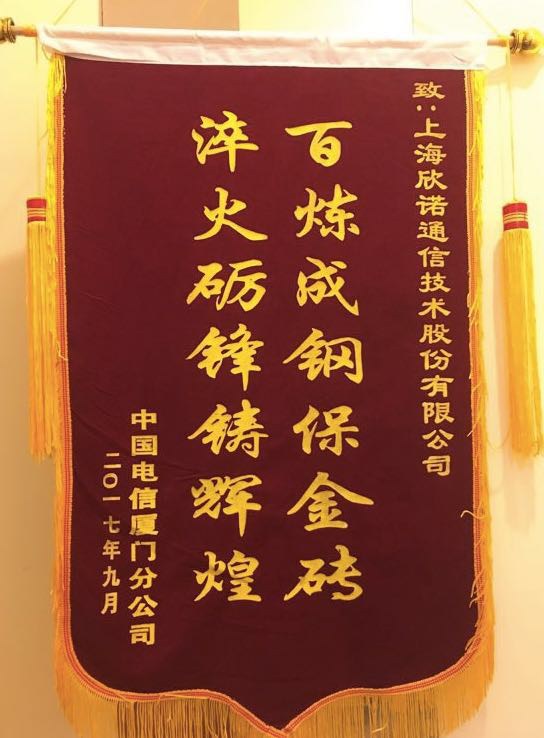 致:上海欣诺通信技术股份有限公司
百炼成钢保金砖
淬火砺锋铸辉煌
中国电信厦门分公司
二〇一七年九月